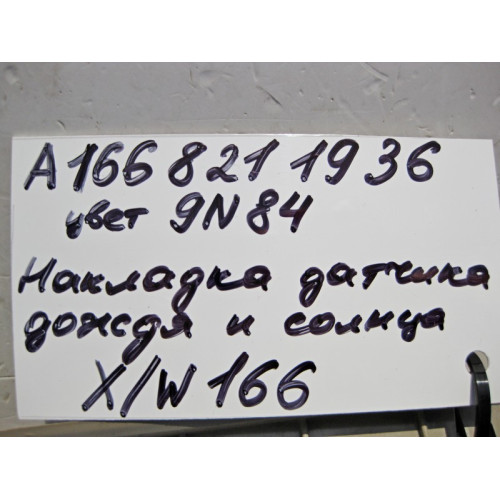 A166 821 1936
цвет 9N84
Накладка датчика
дождя и солнца
X/W166